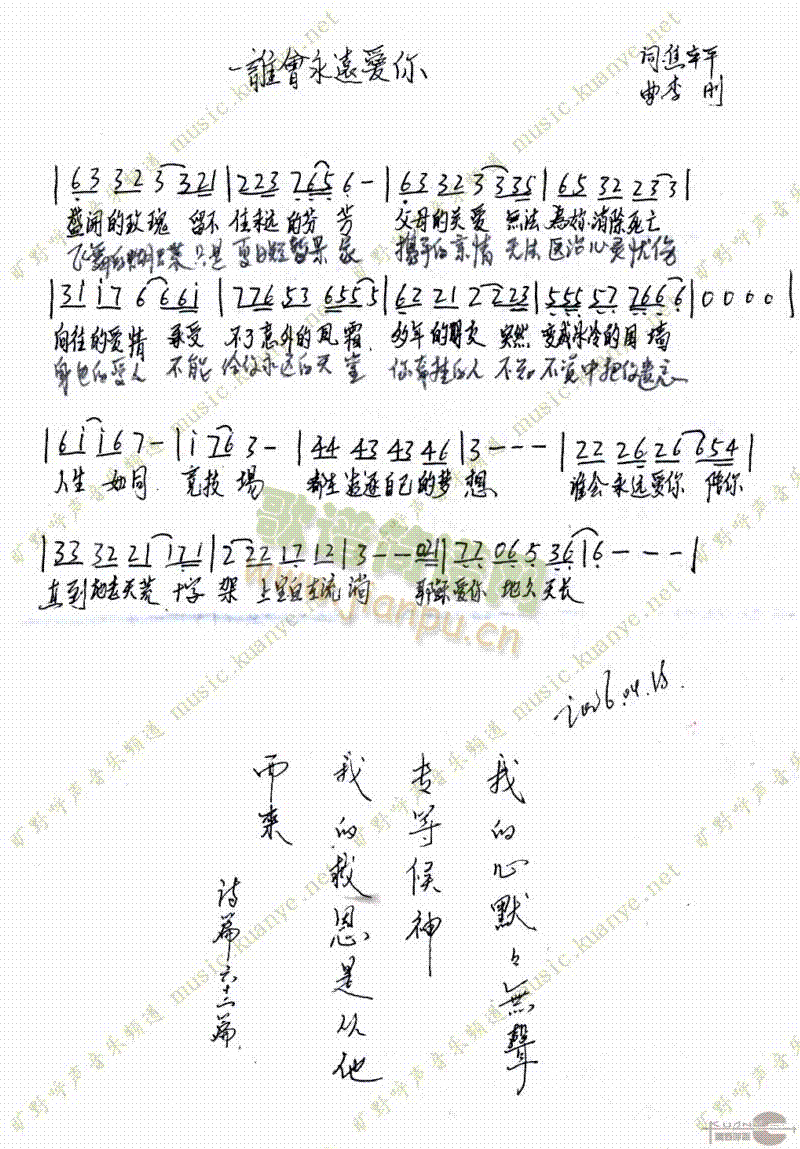 誰會永遠愛你
词焦 平
曲李刚
|63 32 3 321|223 765 6 -|63 323 335|65 32 233|
盛开的玫瑰 留不住永远的芬芳 父母的关爱 无法为她消除死亡
飞舞的蝴蝶 只是夏日 携手的亲情 无法医治心灵忧伤
|31 i7 6 66i|776 53 6555|62 21 2223|555 57 7666|0 0 0 0|
向往的爱情 承受不了意外的风霜 多年的朋友 突然变成冰冷的围墙
身边的爱人 不能给你永远的天堂 你牵挂的人 不知不觉中把你遗忘
|6i i67 -|i 763 -|44 43 43 46|3 - - -|22 26 26 654|
人生如同 竞技場 都在追逐自己的梦想 谁会永远爱你 陪你
|33 32 21 171|2 22 17 12|3 - - 021|77 065 36|6 - - -|
直到地老天荒 十字架上宝血在流淌 耶稣爱你 地久天长
2006.04.15.
我的心默々無聲
专等候神
我的救恩是从他
而来
诗篇六十二篇
歌谱简谱网
www.jianpu.cn
旷野呼声音乐频道 music.kuanye.net
KUANYE.NET
旷野呼声